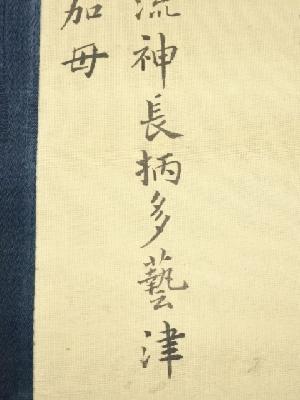 流神長柄多藝津
加母